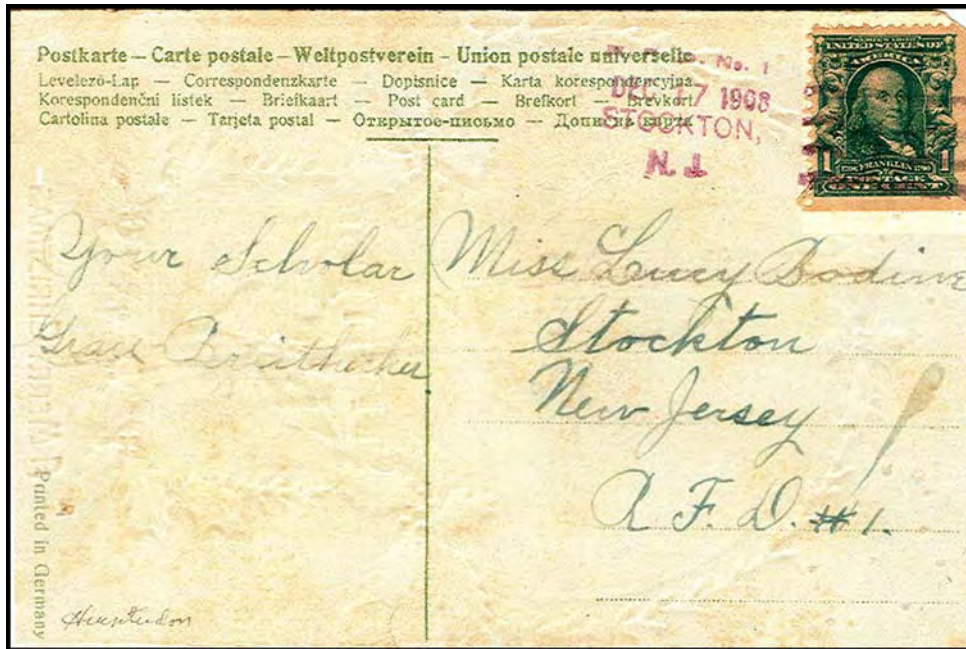 Postkarte – Carte postale – Weltpostverein - Union postale universelle
Levelezö-Lap — Correspondenzkarte — Dopisnice — Karta korespondencyjna
Korespondenční listek — Briefkaart — Post card — Brefkort — Brevkort
Cartolina postale — Tarjeta postal — Открытое-письмо — Дописна карта
No. 1
DEC 17 1908
STOCKTON,
N.J.
SERIES 1902
UNITED STATES OF
AMERICA
1 1706 FRANKLIN 1790 1
POSTAGE
ONE CENT
Your Scholar
Grace
Miss Lucy Bodine
Stockton
New Jersey
R F. D. #1.
Printed in Germany
Hunterdon